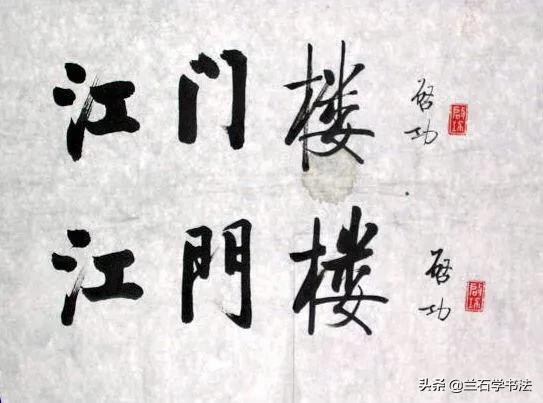 江门楼 启功
江門楼 启功
头条 @兰石学书法